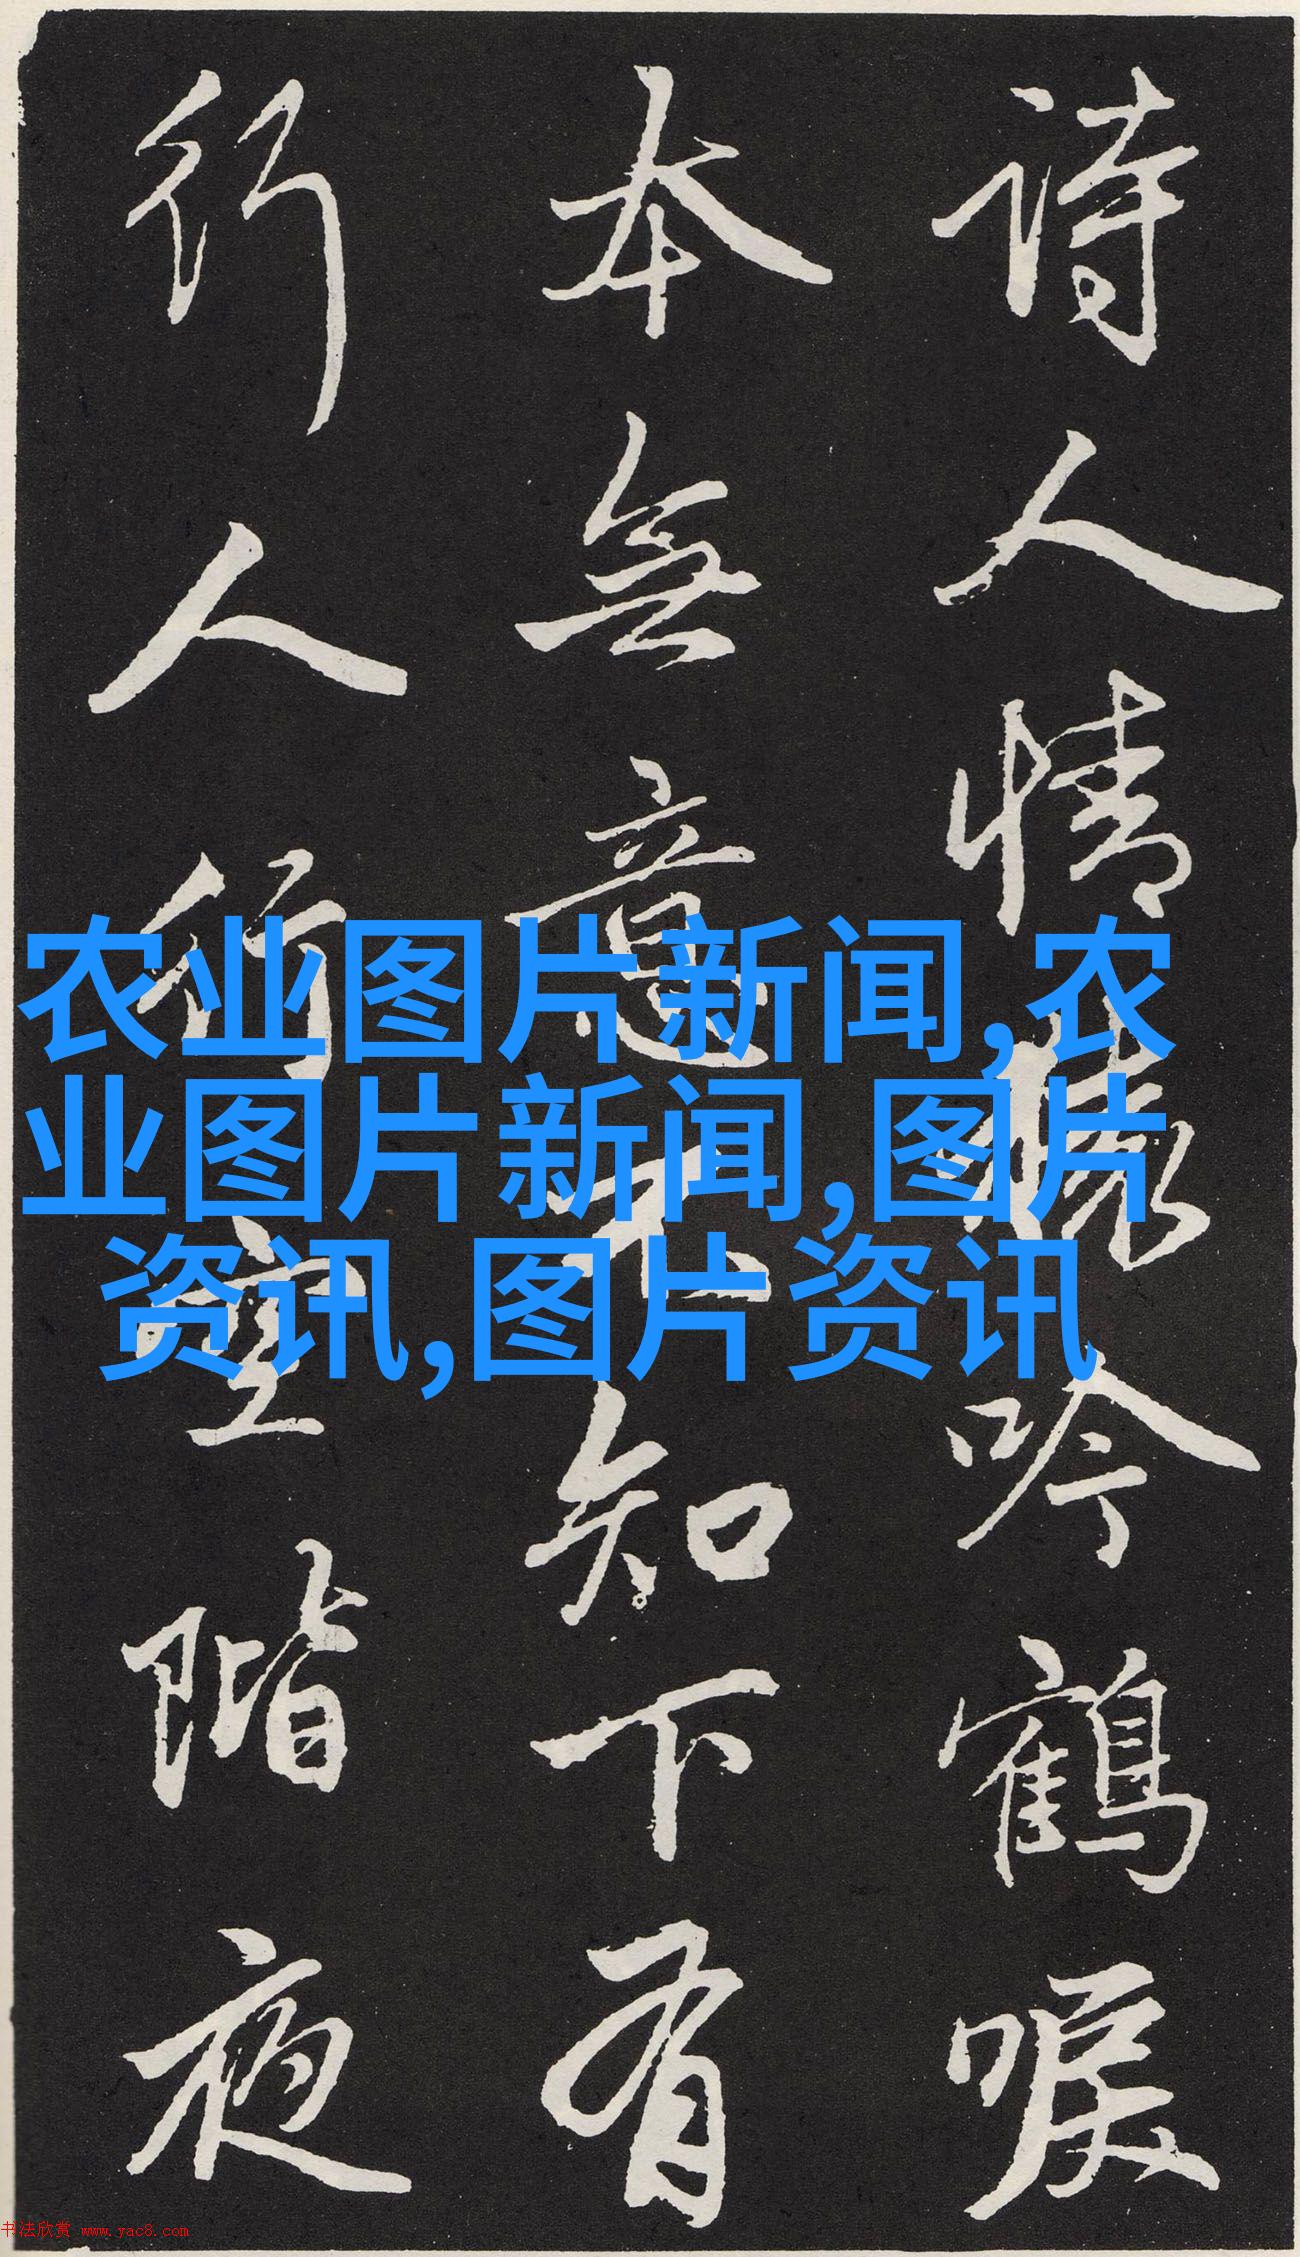 詩人情猿吟鶴唳
本無意不知下有
行人行空階夜
农业图片新闻,农
业图片新闻,图片
资讯,图片资讯
书法欣赏 www.yac8.com